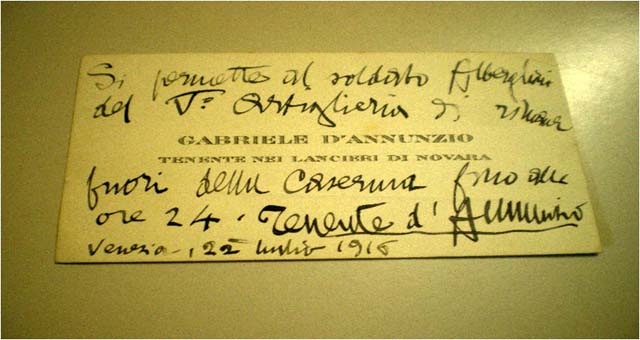 Si permette al soldato Alberghini
del V° Artiglieria di rimaner
GABRIELE D'ANNUNZIO
TENENTE NEI LANCIERI DI NOVARA
fuori della Caserma fino alle
ore 24. Tenente d'Annunzio
Venezia, 22 luglio 1916